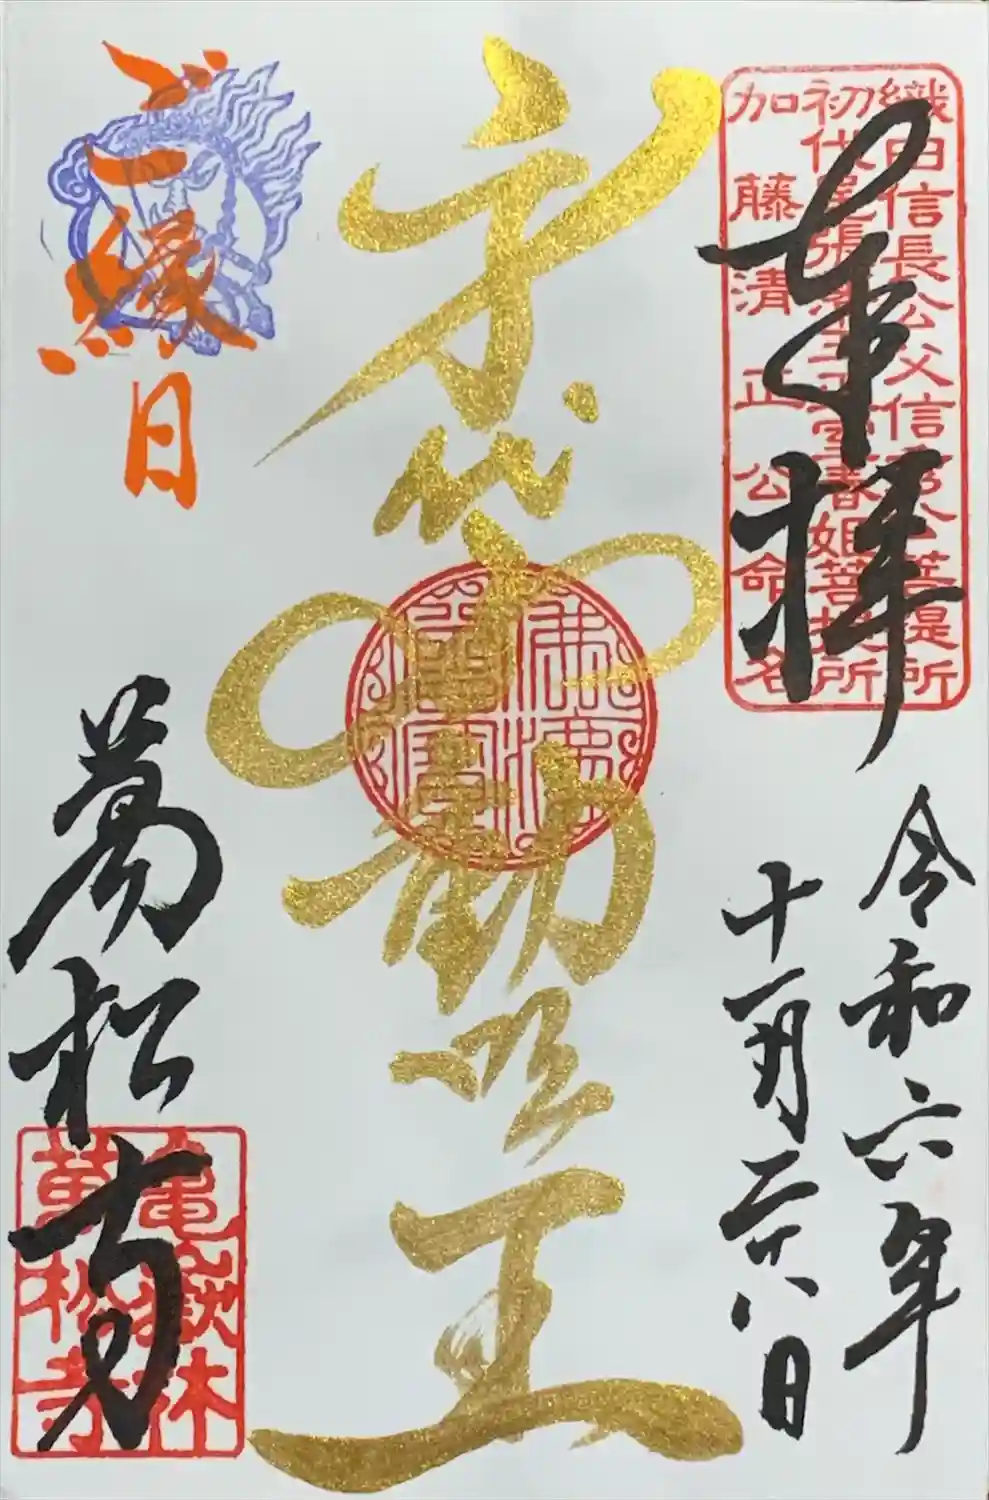 奉拝
織田信長公父信秀公菩提所
初代尾張藩主正室春姫菩提所
加藤清正公命名
令和六年
十一月二十八日
身代不動明王
ご縁日
萬松寺
亀嶽林
萬松寺